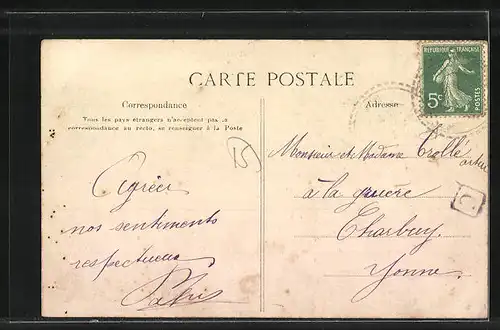 REPUBLIQUE FRANÇAISE
5c
POSTES
CARTE POSTALE
Correspondance
Tous les pays étrangers n'acceptent pas la
correspondance au recto, se renseigner à la Poste
Adresse
15
Agréer
nos sentiments
respectueux
Monsieur et Madame Trollé
à la
Charbuy
Yonne